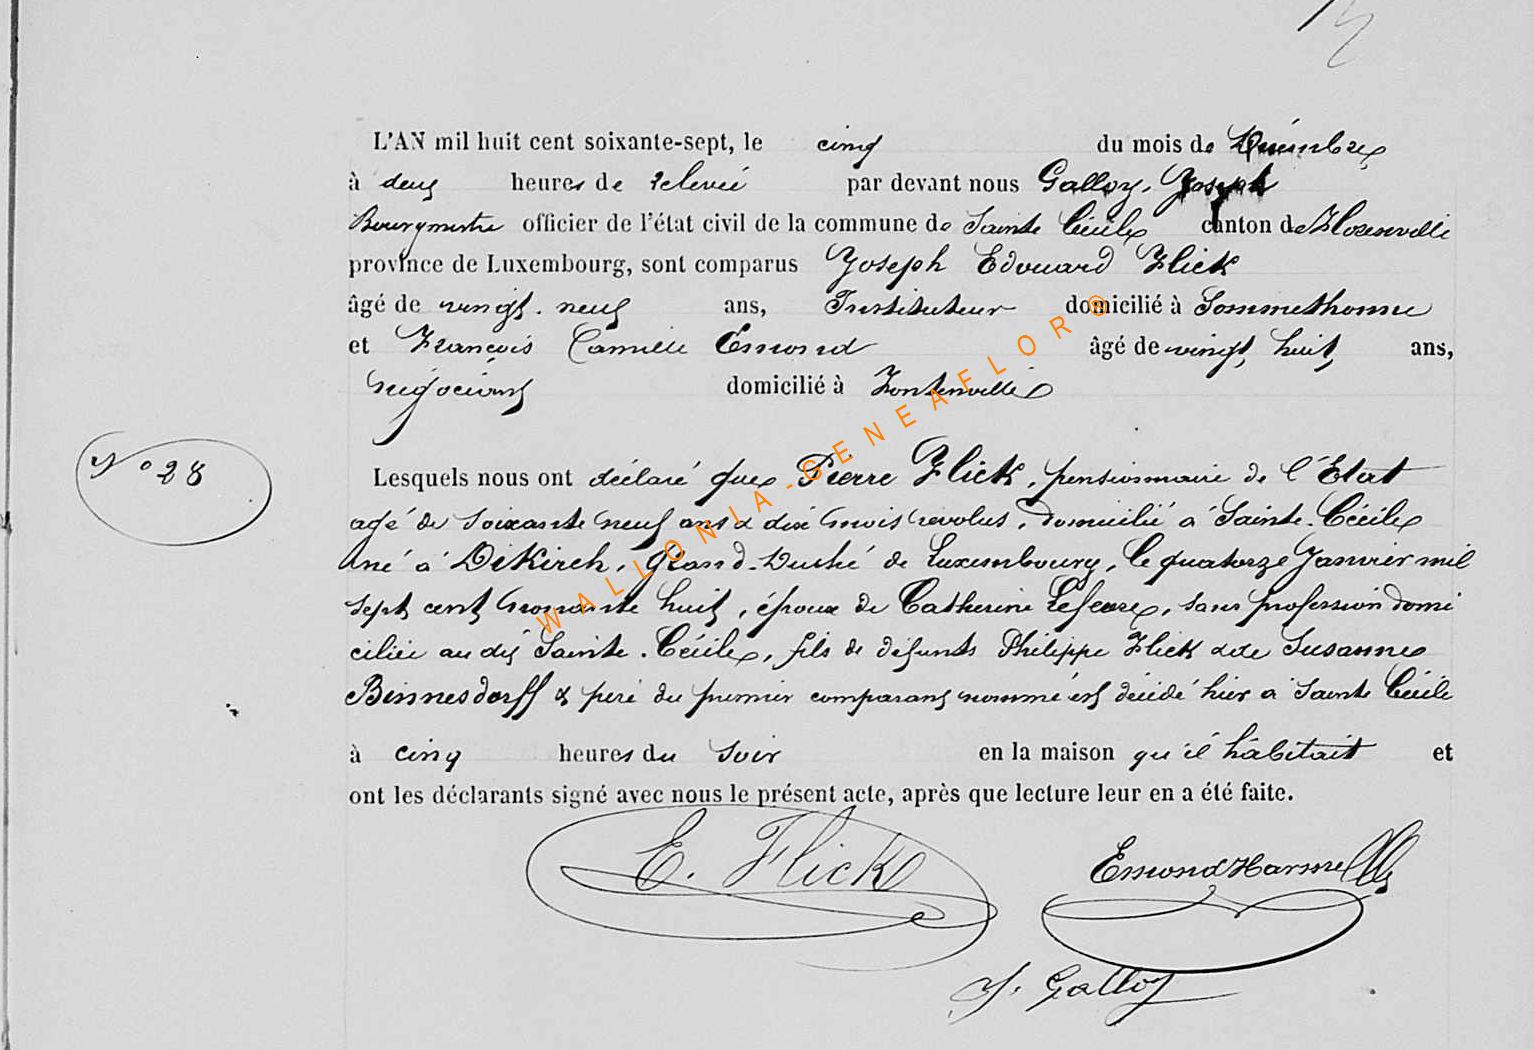 L'AN mil huit cent soixante-sept, le cinq du mois de Décembre
à deux heures de relevée par devant nous Galloy, Joseph
Bourgmestre officier de l'état civil de la commune de Sainte Cécile canton de Florenville
province de Luxembourg, sont comparus Joseph Edouard Flick
âgé de vingt-neuf ans, Instituteur domicilié à Sommethonne
et François Camille Emond âgé de vingt huit ans,
négociant domicilié à Fontenoille
N° 28
Lesquels nous ont déclaré que Pierre Flick, pensionnaire de l'Etat
agé de soixante neuf ans & dix mois révolus, domicilié à Sainte-Cécile
né à Dikirch, Grand-Duché de Luxembourg, le quatorze Janvier mil
sept cent nonante huit, époux de Catherine Lefevre, sans profession domi
ciliée au dit Sainte-Cécile, fils de défunts Philippe Flick & de Susanne
Binnesdorff & père du premier comparant nommé est décédé hier à Sainte Cécile
à cinq heures du soir en la maison qu'il habitait et
ont les déclarants signé avec nous le présent acte, après que lecture leur en a été faite.
E. Flick EmondHarmel
J. Galloy
WALLONIA-GENEAFLOR©